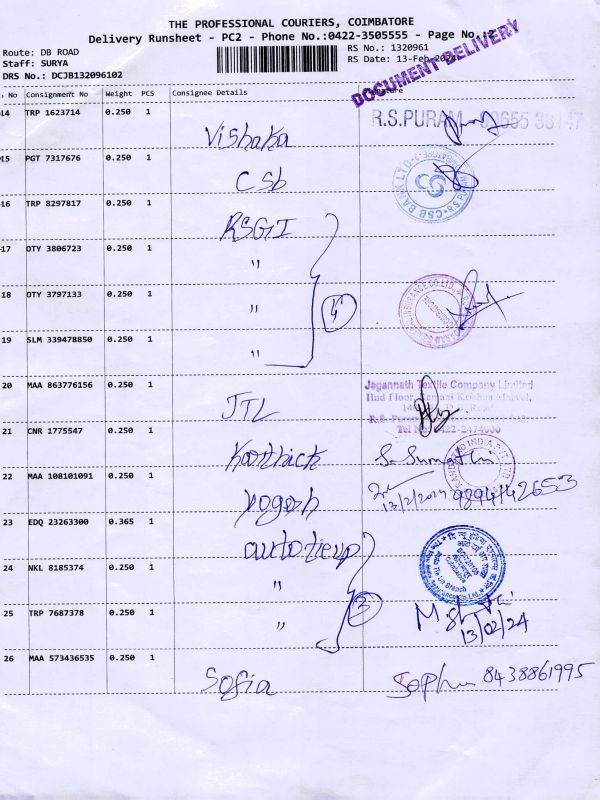 THE PROFESSIONAL COURIERS, COIMBATORE
Delivery Runsheet - PC2 - Phone No.:0422-3505555 - Page No.:2
Route: DB ROAD
RS No.: 1320961
Staff: SURYA
RS Date: 13-Feb-2024
DRS No.: DCJB132096102
DOCUMENT DELIVERY
. No Consignment No Weight PCS Consignee Details Signature
14 TRP 1623714 0.250 1 Vishaka
R.S.PURAM
15 PGT 7317676 0.250 1 CSb
CSB BANK LTD
16 TRP 8297817 0.250 1 RSGI
17 OTY 3806723 0.250 1 "
18 OTY 3797133 0.250 1 " 4
19 SLM 339478850 0.250 1 "
20 MAA 863776156 0.250 1 JTL
Jagannath Textile Company Limited
IInd Floor,
Tel No 0422-2474000
21 CNR 1775547 0.250 1 Karthick S. Sumathi
22 MAA 108101091 0.250 1 Yogesh
13/2/2024 9894142653
23 EDQ 23263300 0.365 1 auto tieup
24 NKL 8185374 0.250 1 "
25 TRP 7687378 0.250 1 " 3
13/02/24
26 MAA 573436535 0.250 1 Sofia
8438861995